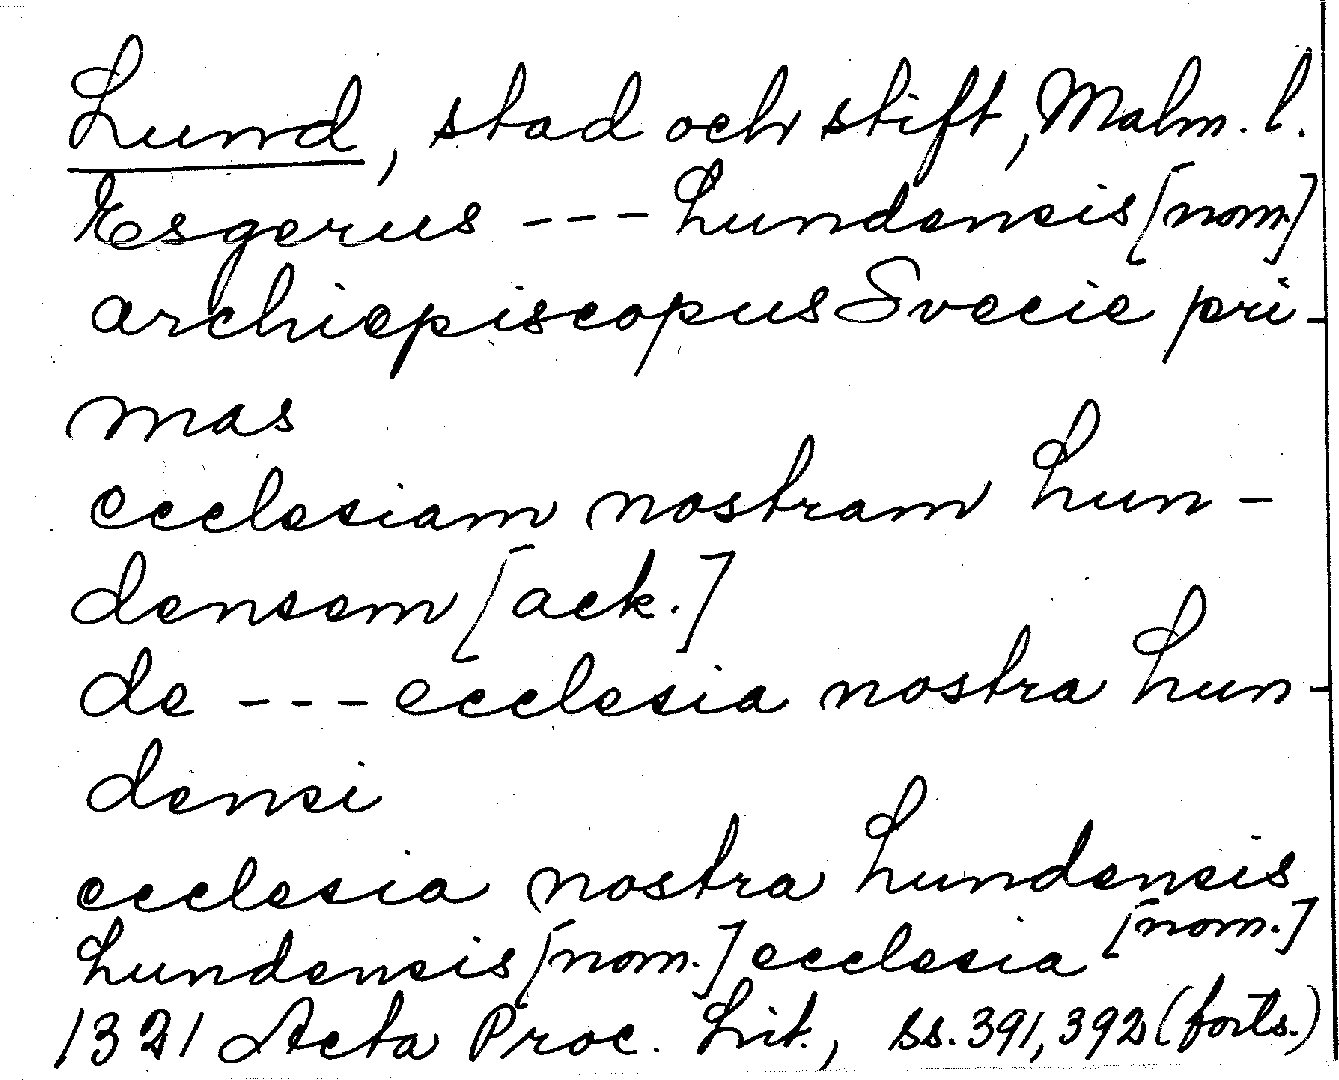 Lund, stad och stift, Malm. l.
Esgerus --- Lundensis [nom.]
archiepiscopus Svecie pri-
mas
ecclesiam nostram Lun-
densem [ack.]
de --- ecclesia nostra Lun-
densi
ecclesia nostra Lundensis
[nom.]
Lundensis [nom.] ecclesia
1321 Acta Proc. Lit., ss. 391, 392 (forts.)